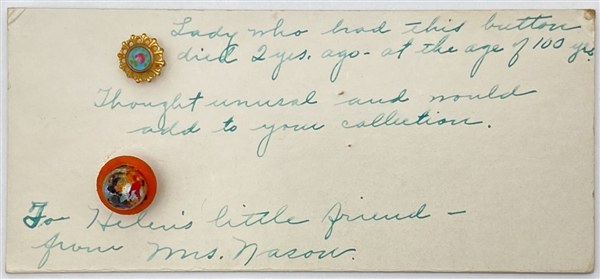 Lady who had this button
died 2 yrs. ago - at the age of 100 yrs.
Thought unusual and would
add to your collection.
To Helen's little friend -
from Mrs. Nason.